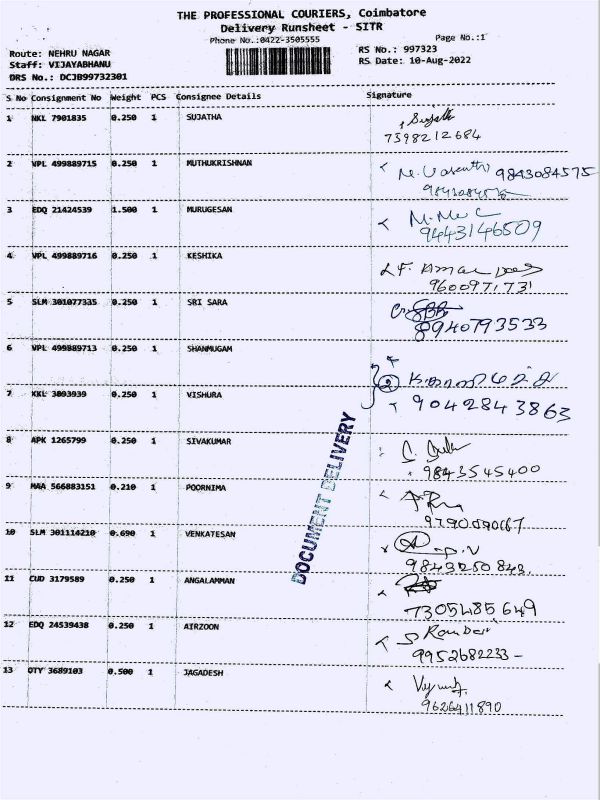 THE PROFESSIONAL COURIERS, Coimbatore
Delivery Runsheet - SITR
Phone No.:0422-3505555
Page No.:1
Route: NEHRU NAGAR
RS No.: 997323
Staff: VIJAYABHANU
RS Date: 10-Aug-2022
DRS No.: DCJB99732301
S No Consignment No Weight PCS Consignee Details Signature
1 NKL 7901835 0.250 1 SUJATHA
7398212684
2 VPL 499889715 0.250 1 MUTHUKRISHNAN 9843084575
3 EDQ 21424539 1.500 1 MURUGESAN
9443146509
4 VPL 499889716 0.250 1 KESHIKA
9600971731
5 SLM 301077335 0.250 1 SRI SARA
8940793533
6 VPL 499889713 0.250 1 SHANMUGAM
2
7 KKL 3893939 0.250 1 VISHURA
9042843863
8 APK 1265799 0.250 1 SIVAKUMAR
9843545400
9 MAA 566883151 0.210 1 POORNIMA
10 SLM 301114210 0.690 1 VENKATESAN
9843250843.
11 CUD 3179589 0.250 1 ANGALAMMAN
7305485649
12 EDQ 24539438 0.250 1 AIRZOON
9952682233-
13 OTY 3689103 0.500 1 JAGADESH
9626411890
DOCUMENT DELIVERY